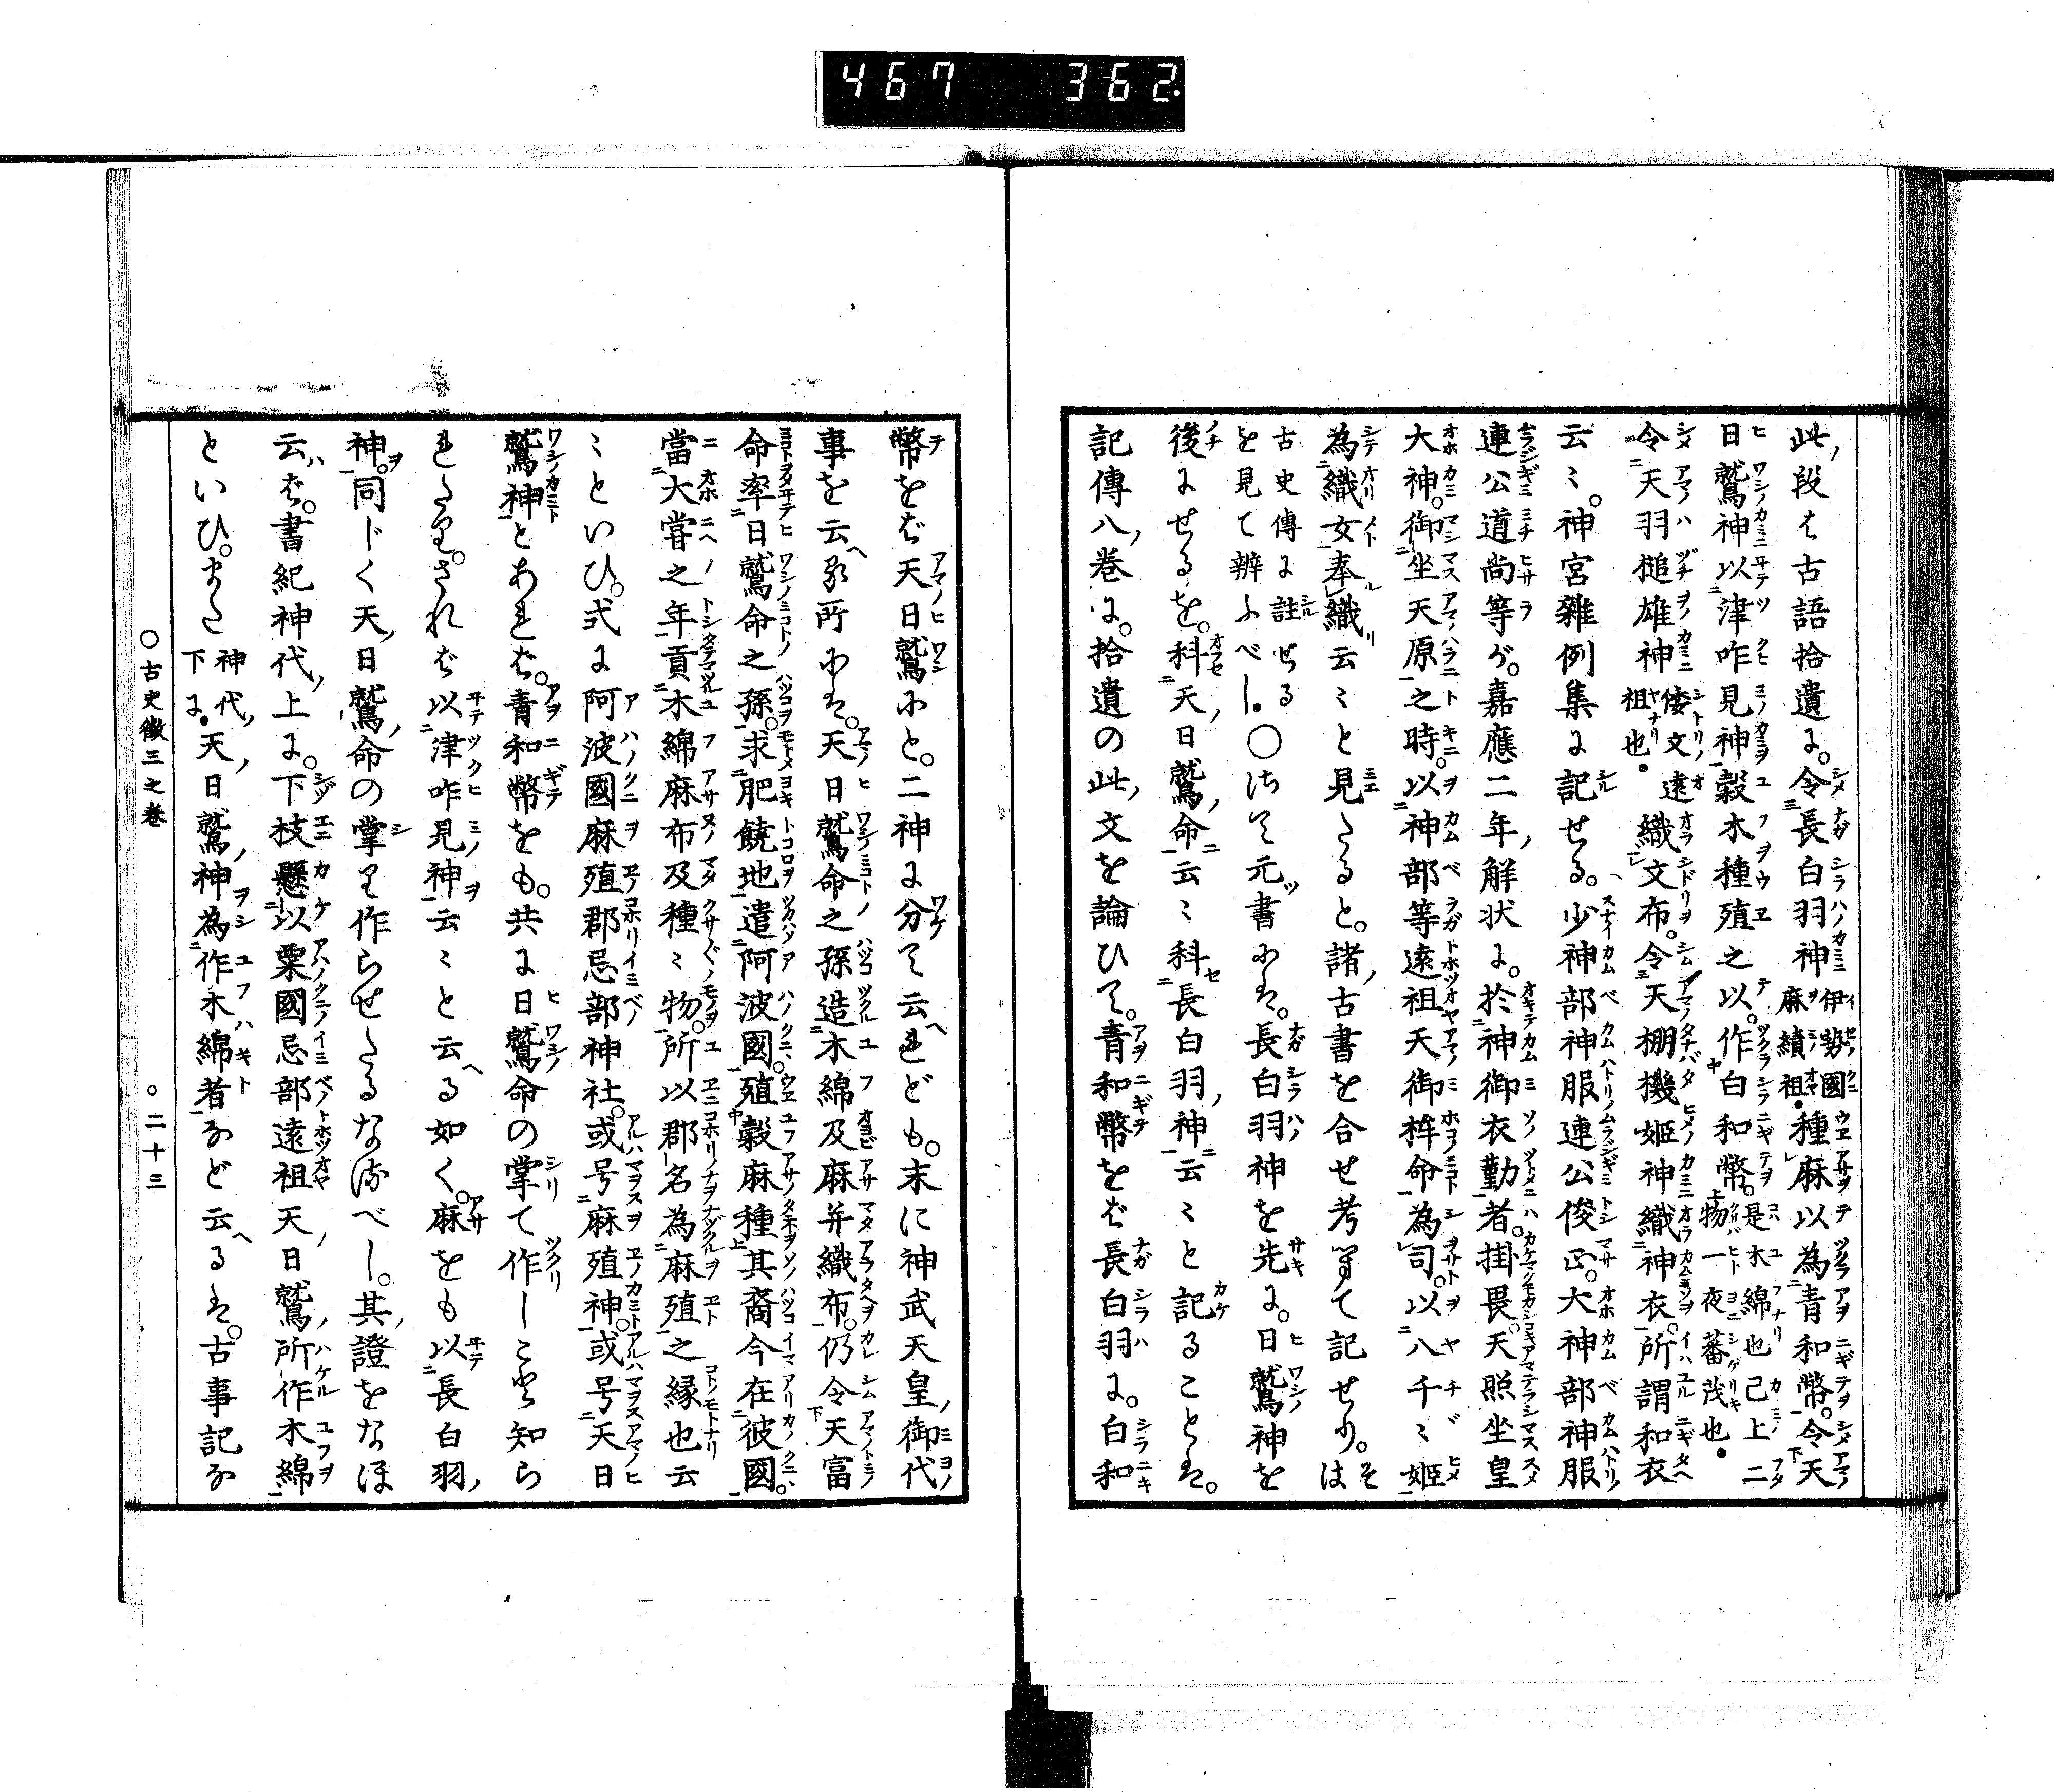 467 362.
此段は古語拾遺に。令長白羽神伊勢國麻績祖。種麻以為青和幣。令天
日鷲神以津咋見神穀木種殖之以。作白和幣。是木綿也已上二物一夜蕃茂也。
令天羽槌雄神倭文遠祖也。織文布。令天棚機姫神織神衣。所謂和衣
云〻。神宮雑例集に記せる。少神部神服連公俊正。大神部神服
連公道尚等が。嘉應二年解状に。於神御衣勤者。掛畏天照坐皇
大神。御坐天原之時。以神部等遠祖天御桙命為司。以八千〻姫
為織女奉織云〻と見たると。諸古書を合せ考へて記せり。そは
古史傳に註せるを見て辨ふべし。○さて元書には。長白羽神を先に。日鷲神を
後にせるを。科天日鷲命云〻科長白羽神云〻と記ることは。
記傳八巻に。拾遺の此文を論ひて。青和幣をば長白羽に。白和
幣をば天日鷲にと。二神に分て云れども。末に神武天皇御代
事を云る所には。天日鷲命之孫造木綿及麻并織布。仍令天富
命率日鷲命之孫。求肥饒地遣阿波國。殖穀麻種其裔今在彼國。
當大甞之年貢木綿麻布及種〻物。所以郡名為麻殖之縁也云
〻といひ。式に阿波國麻殖郡忌部神社。或号麻殖神。或号天日
鷲神とあれば。青和幣をも。共に日鷲命の掌て作しこと知ら
れたり。されば以津咋見神云〻と云る如く。麻をも以長白羽
神。同じく天日鷲命の掌り作らせたるなるべし。其證をなほ
云ば。書紀神代上に。下枝懸以粟國忌部遠祖天日鷲所作木綿
といひ。また神代下に。天日鷲神為作木綿者など云るは。古事記な
○古史徴三之巻 ○二十三